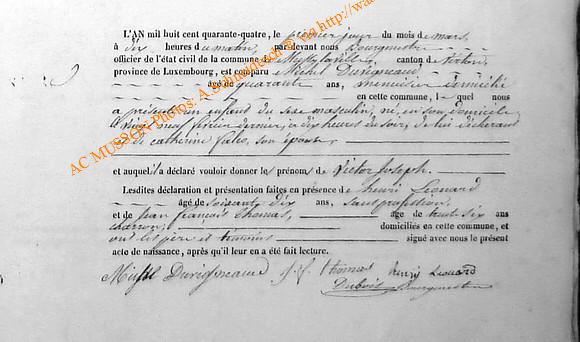 L'AN mil huit cent quarante-quatre, le premier jour du mois de mars,
à dix heures du matin, par devant nous Bourgmestre
officier de l'état civil de la commune de Mussy canton de Virton,
province de Luxembourg, est comparu Michel Duvigneaud,
âgé de quarante ans, menuisier domicilié
en cette commune, l quel nous
a présenté un enfant du sexe masculin, né en son domicile
le vingt neuf février dernier, à dix heures du soir, de lui déclarant
et de catherine son épouse,
et auquel il a déclaré vouloir donner les prénoms de Victor Joseph.
Lesdites déclaration et présentation faites en présence de henri Léonard
âgé de soixante dix ans, sans profession,
et de jean françois thomas, âgé de trente six ans
charron, domiciliés en cette commune, et
ont les père et témoins signé avec nous le présent
acte de naissance, après qu'il leur en a été fait lecture.
Michel Duvigneaud j. f. thomas henri Léonard
Dubois Bourgmestre
AC MUSSON Photos: A. Schmideach ©, via http://wa